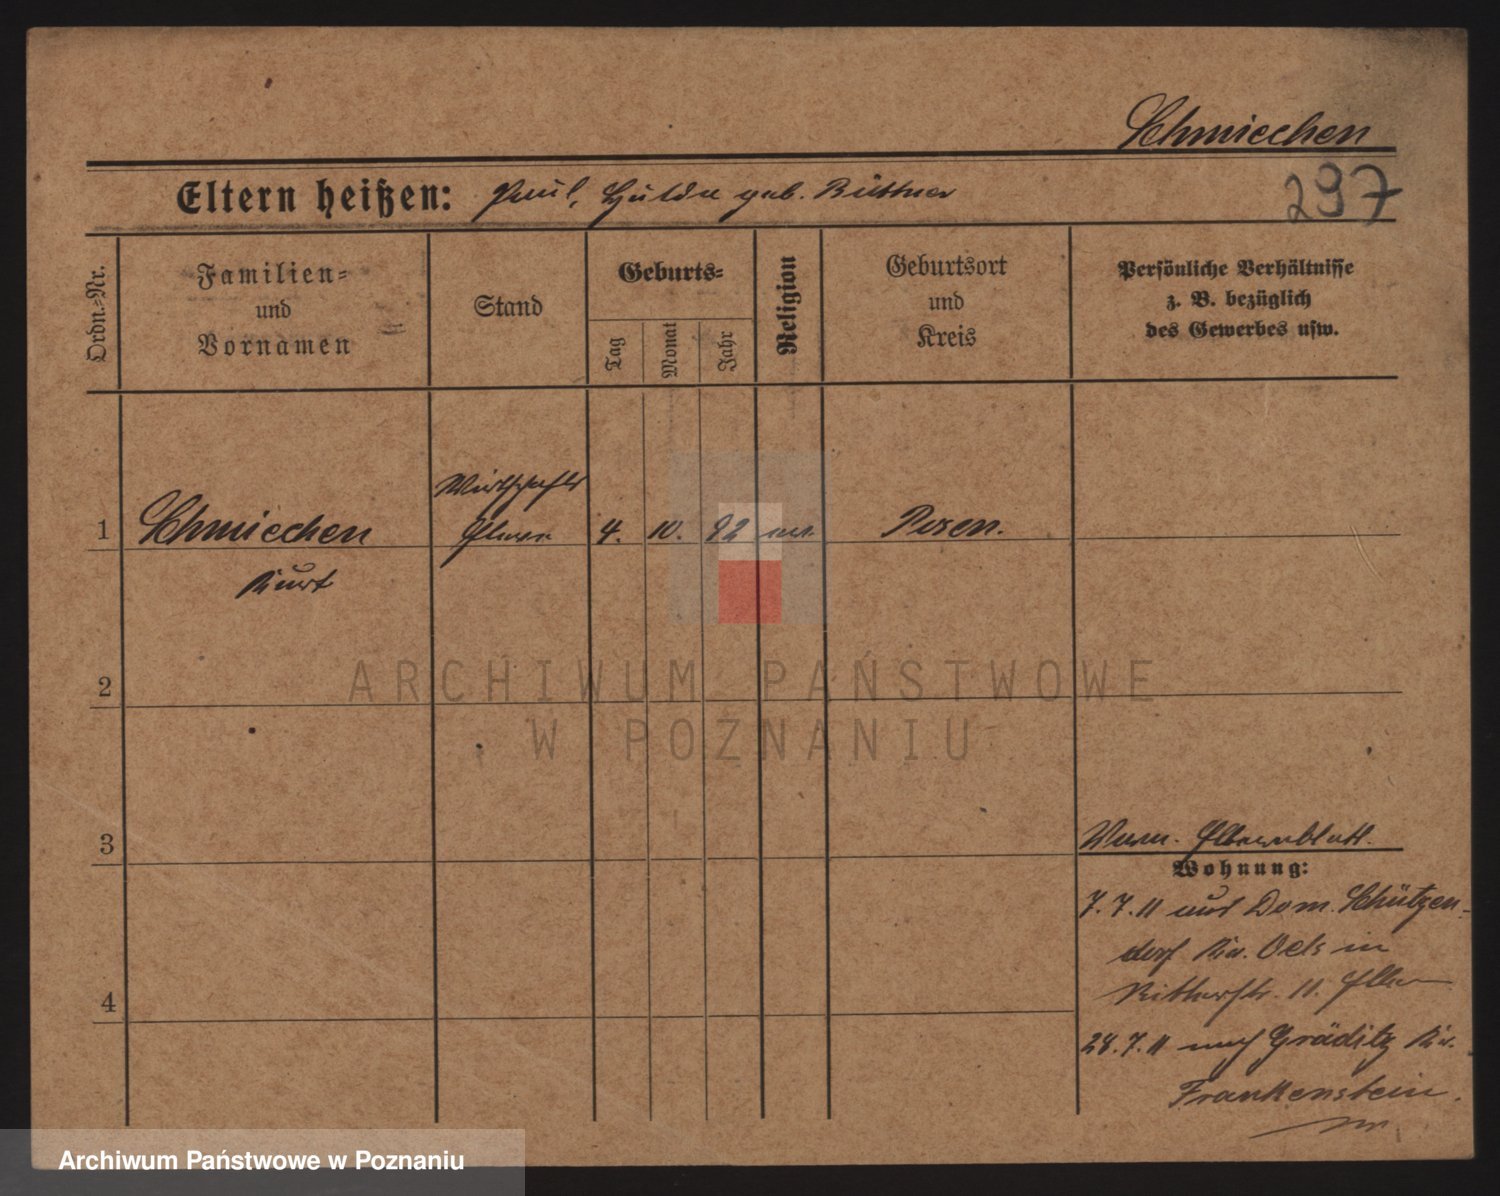 Schmiechen
Eltern heißen: Paul, Hulda geb. Büttner
297
Ordn.=Nr.
Familien=
und
Vornamen
Stand
Geburts=
Tag
Monat
Jahr
Religion
Geburtsort
und
Kreis
Persönliche Verhältnisse
z. B. bezüglich
des Gewerbes usw.
Wirtschafts
1 Schmiechen 4. 10. 92 Posen.
Kurt
2
ARCHIWUM PAŃSTWOWE
W POZNANIU
3
Elternblatt.
Wohnung:
7.7.11 aus Dom. Schützen-
dorf Kr. Oels in
Ritterstr. 11. Eltern
4
28.7.11 nach Gräditz Kr.
Frankenstein.
Archiwum Państwowe w Poznaniu